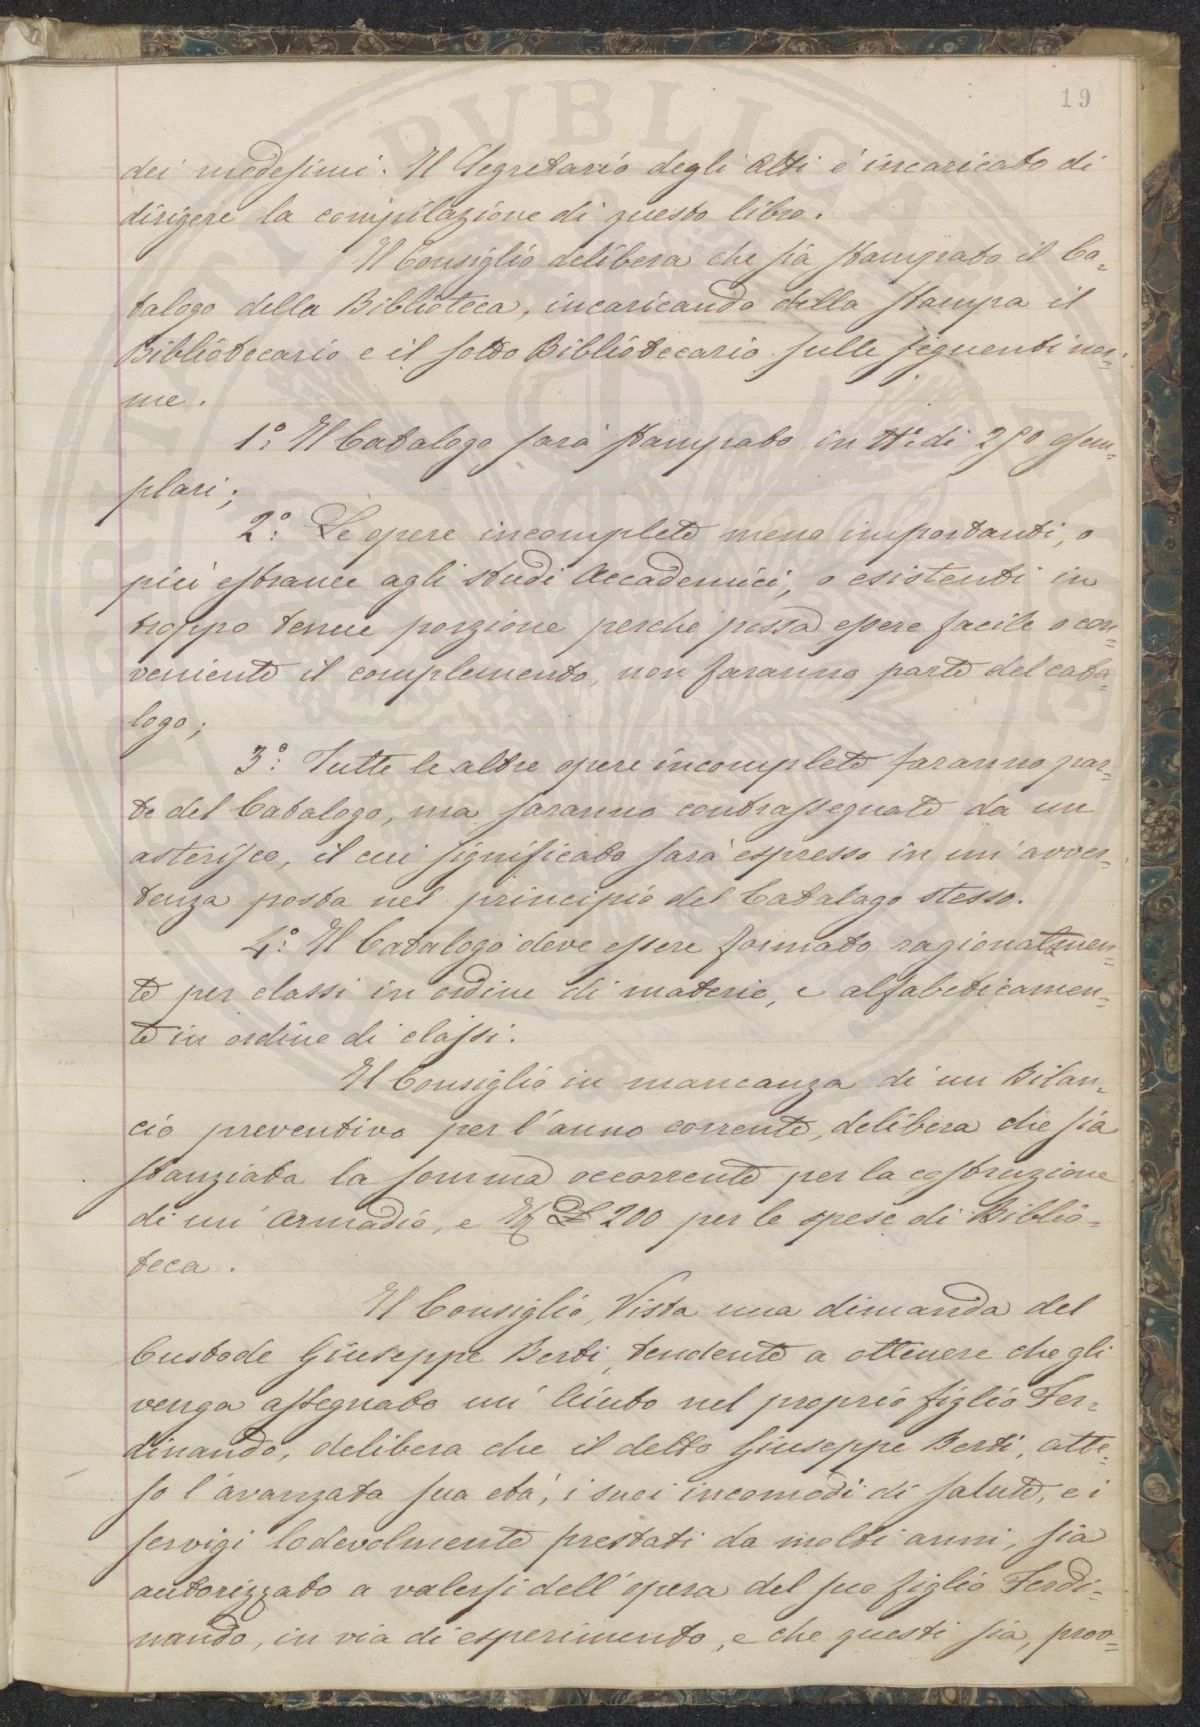 19
dei medesimi. Il Segretario degli Atti è incaricato di
dirigere la compilazione di questo libro.
Il Consiglio delibera che sia stampato il Ca=
talogo della Biblioteca, incaricando della stampa il
Bibliotecario e il sotto Bibliotecario sulle seguenti nor=
me.
1°: Il Catalogo sarà stampato in N° di 250 esem=
plari;
2°: Le opere incomplete meno importanti, o
più estranee agli studi Accademici, o esistenti in
troppo tenue porzione perchè possa essere facile o con=
veniente il complemento, non faranno parte del cata=
logo;
3°: Tutte le altre opere incomplete faranno par=
te del Catalogo, ma saranno contrassegnate da un
asterisco, il cui significato sarà espresso in un' avver=
tenza posta nel principio del Catalago stesso.
4°: Il Catalogo deve essere formato ragionatamen=
te per classi in ordine di materie, e alfabeticamen=
te in ordine di classi.
Il Consiglio in mancanza di un Bilan=
cio preventivo per l'anno corrente, delibera che sia
stanziata la somma occorrente per la costruzione
di un' Armadio, e 200 per le spese di Biblio=
teca.
Il Consiglio, Vista una dimanda del
Custode Giuseppe Berti, tendente a ottenere che gli
venga assegnato un' Aiuto nel proprio figlio Fer=
dinando, delibera che il detto Giuseppe Berti, atte=
so l'avanzata sua età, i suoi incomodi di salute, e i
servigi lodevolmente prestati da molti anni, sia
autorizzato a valersi dell'opera del suo figlio Ferdi=
nando, in via di esperimento, e che questi sia, prov=